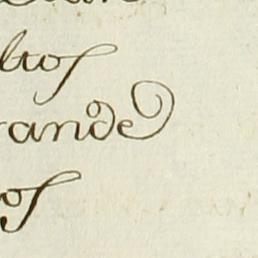 ltos
rande
os